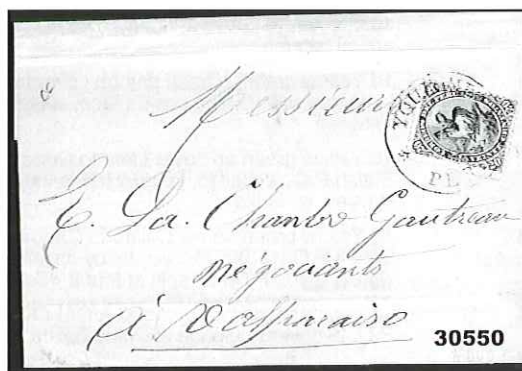 Messieurs
E. La. Chambre Gautreau
negociants
à Valparaiso
30550